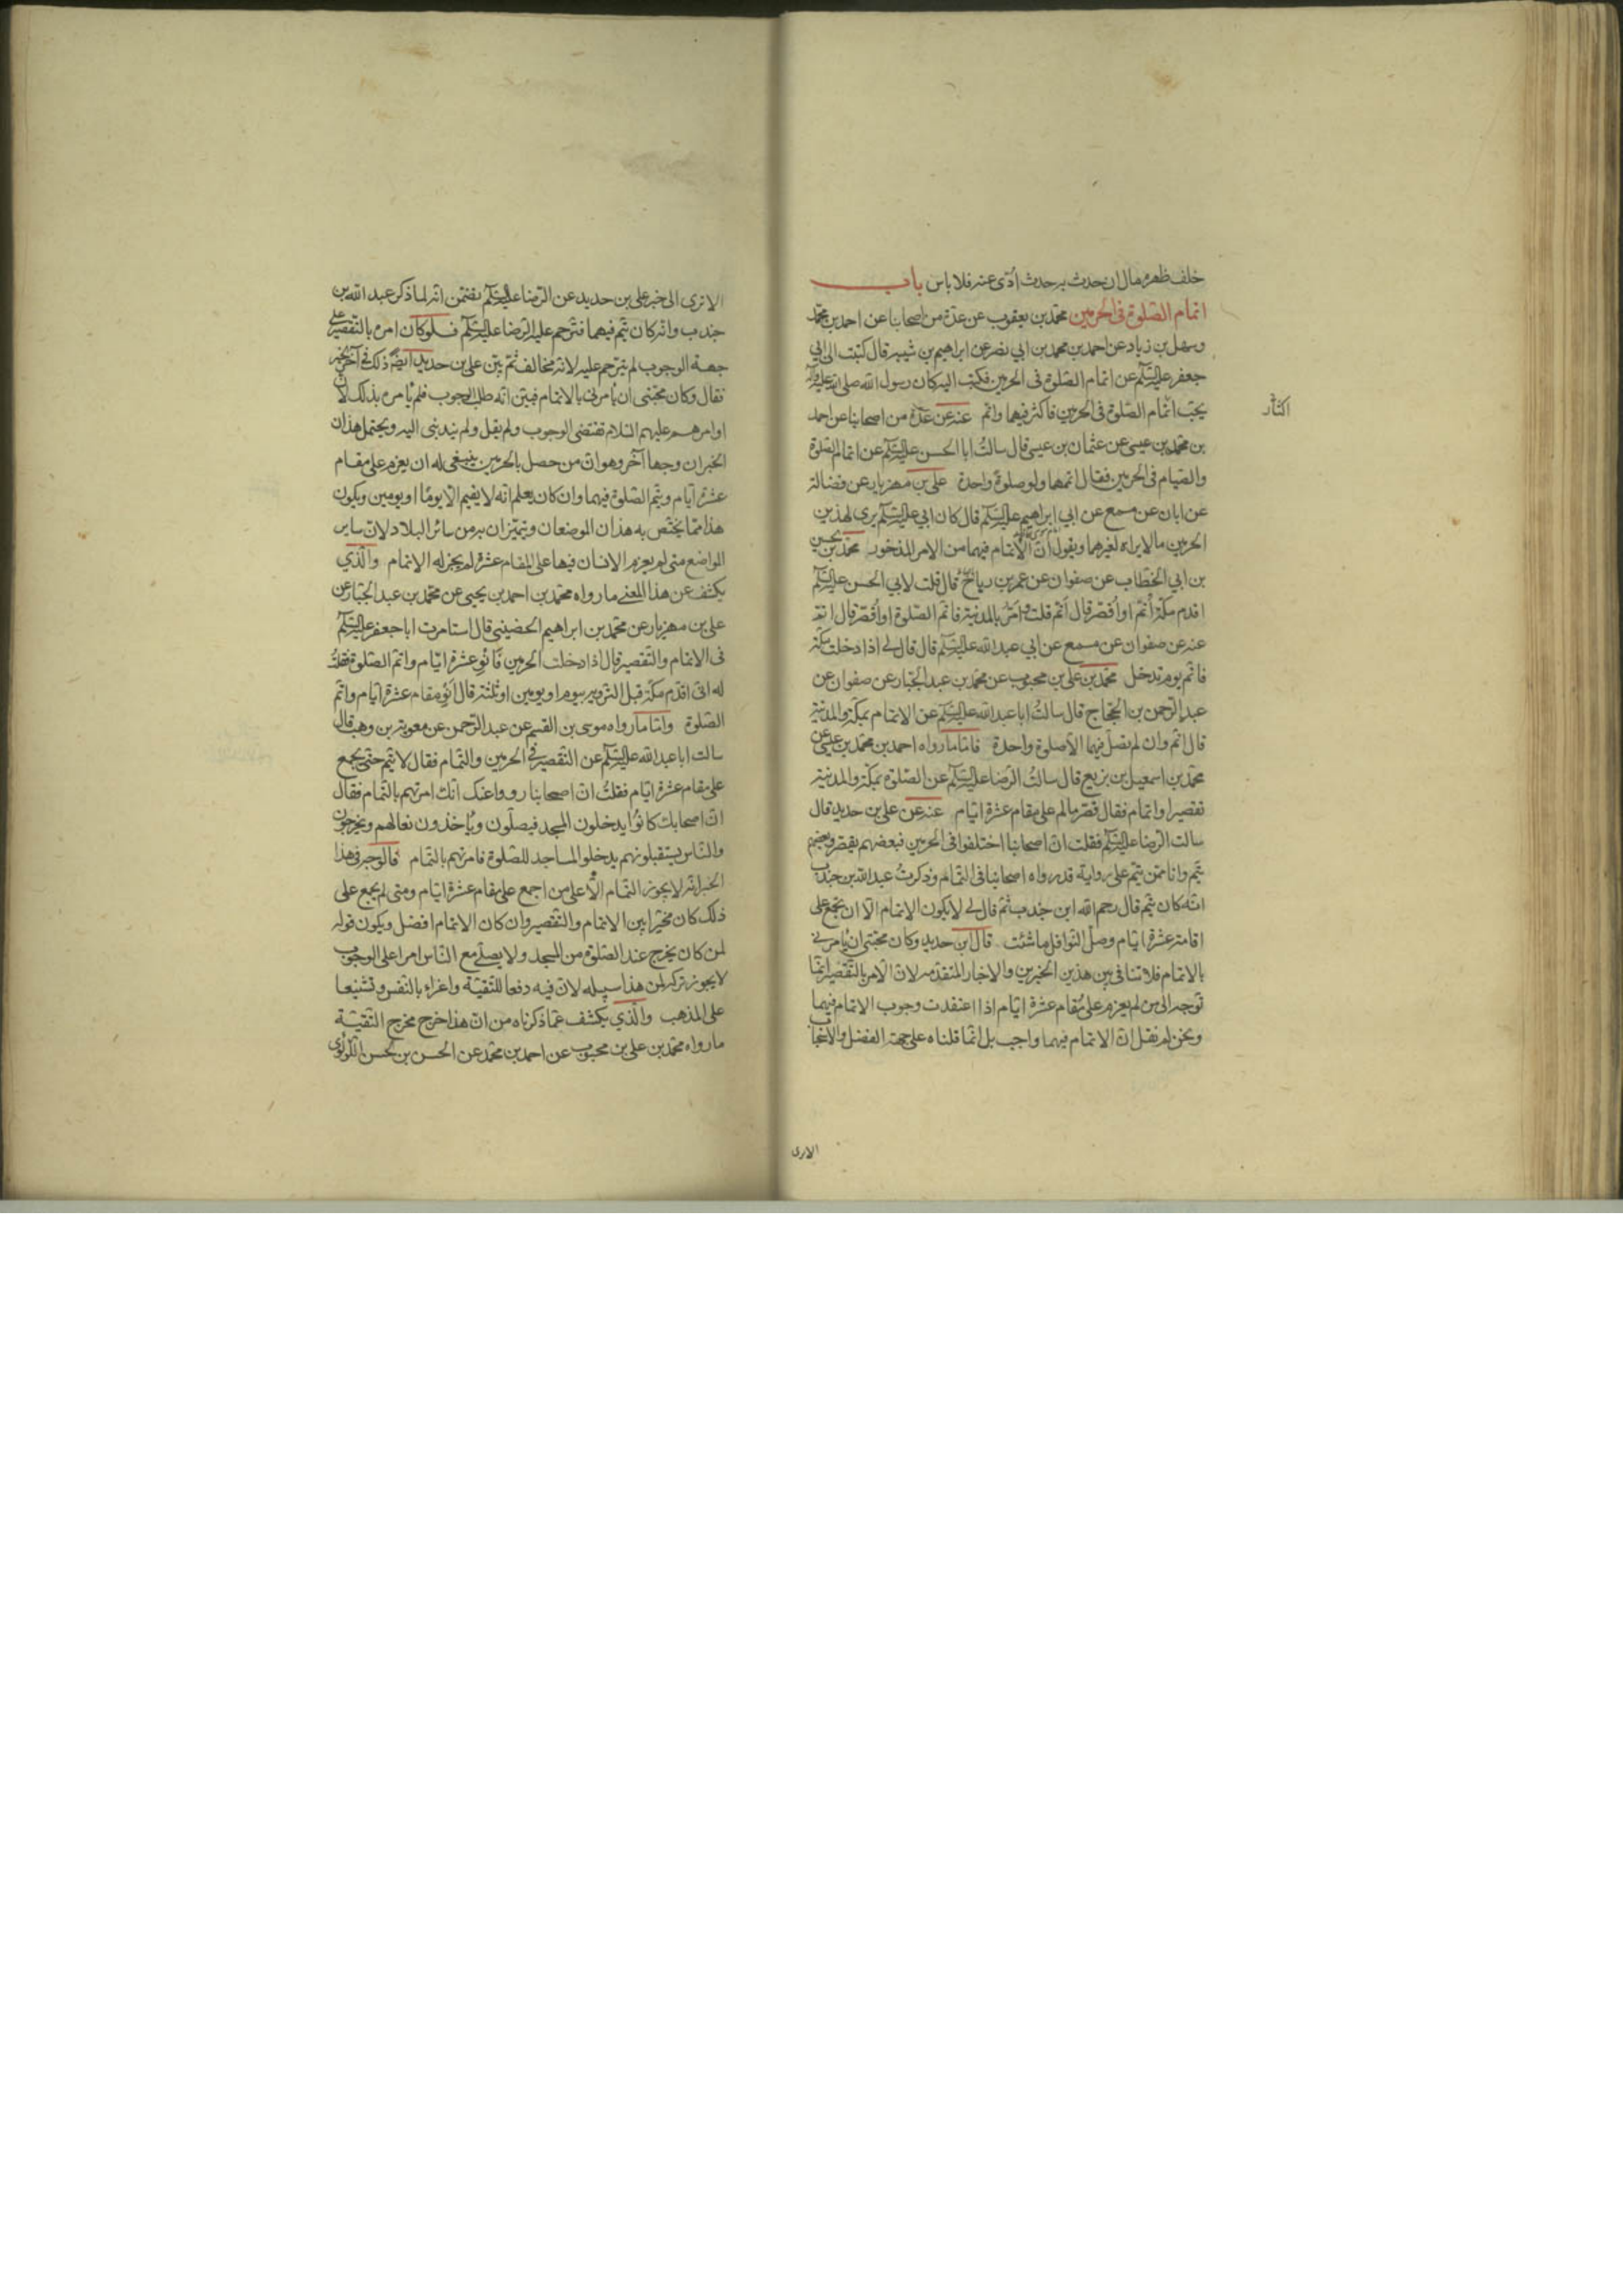 خلف ظهره مال ان حدث به حدث ادّى عنه فلا باس باب
اتمام الصّلوة فى الحرمين محمّد بن يعقوب عن عدّة من اصحابنا عن احمد بن محمّد
وسهل بن زياد عن احمد بن محمّد بن ابي نصر عن ابراهيم بن شيبه قال كتبت الى ابي
جعفر عليه السّلم عن اتمام الصّلوة فى الحرمين فكتب اليه كان رسول الله صلى الله عليه وآله
يحبّ اتمام الصّلوة فى الحرمين فاكثر فيهما واتم عنه عن عدّة من اصحابنا عن احمد
اكثار
بن محمّد بن عيسى عن عثمان بن عيسى قال سالتُ ابا الحسن عليه السّلم عن اتمام الصّلوة
والصّيام فى الحرمين فقال اتمها ولو صلوة واحدة على بن مهزيار عن فضالة
عن ابان عن مسمع عن ابي ابراهيم عليه السّلم قال كان ابي عليه السّلم يرى لهذين
الحرمين مالا يراه لغيرهما ويقول انّ الاتمام فيهما من الامر المذخور محمّد بن الحسين
بن ابي الخطّاب عن صفوان عن عمر بن رياح قال قلت لابي الحسن عليه السّلم
اقدم مكّة اُتمّ او اُقصّر قال اتمّ قلت وامرّ بالمدينة فاتم الصّلوة او اُقصّر قال اتمّ
عنه عن صفوان عن مسمع عن ابي عبد الله عليه السّلم قال قال لي اذا دخلت مكّة
فاتم يوم تدخل محمّد بن على بن محبوب عن محمّد بن عبد الجبّار عن صفوان عن
عبد الرّحمن بن الحجّاج قال سالتُ ابا عبد الله عليه السّلم عن الاتمام بمكّة والمدينة
قال اتمّ وان لم تصلّ فيهما الّا صلوة واحدة فامّا ما رواه احمد بن محمّد بن عيسى عن
محمّد بن اسمعيل بن بزيع قال سالتُ الرّضا عليه السّلم عن الصّلوة بمكّة والمدينة
تقصير او اتمام فقال قصّر مالم على مقام عشرة ايّام عنه عن على بن حديد قال
سالت الرّضا عليه السّلم فقلت انّ اصحابنا اختلفوا فى الحرمين فبعضهم يقصر وبعضهم
يتمّ وانا ممّن يتمّ على رواية قد رواه اصحابنا فى التّمام وذكرتُ عبد الله بن جندب
انّه كان يتم قال رحم الله ابن جندب ثمّ قال لي لا يكون الاتمام الّا ان تجمع على
اقامة عشرة ايّام وصلّ النّوافل ما شئت قال ابن حديد وكان محبّتى ان يأمرنى
بالاتمام فلا تنافى بين هذين الخبرين والاخبار المتقدّمه لانّ الامر بالتّقصير انّما
توجه الى من لم يعزم على مقام عشرة ايّام اذا اعتقدت وجوب الاتمام فيهما
ونحن لم نقل انّ الاتمام فيهما واجب بل انّما قلناه على جهة الفضل والاستحباب
الا ترى
الا ترى الى خبر على بن حديد عن الرّضا عليه السّلم يتضمّن انّه لما ذكر عبد الله بن
جندب وانّه كان يتم فيهما فترحم عليه الرّضا عليه السّلم فلو كان امره بالتّقصير على
جهة الوجوب لم يترحم عليه لانّه مخالف ثمّ بيّن على بن حديد ايضا ذلك فى آخر الخبر
فقال وكان محبّتى ان يأمرنى بالاتمام فبيّن انّه طلب الوجوب فلم يأمره بذلك لانّ
اوامرهم عليهم السّلام تقتضى الوجوب ولم يقل ولم يندبنى اليه ويحتمل هذان
الخبران وجها آخر وهو انّ من حصل بالحرمين ينبغى له ان يعزم على مقام
عشرة ايّام ويتم الصّلوة فيهما وان كان يعلم انّه لا يقيم الّا يومًا او يومين ويكون
هذا ممّا يختّص به هذان الموضعان ويتميّزان به من سائر البلاد لانّ سائر
المواضع متى لم يعزم الانسان فيها على المقام عشرة لم يجز له الاتمام والّذي
يكشف عن هذا المعنى ما رواه محمّد بن احمد بن يحيى عن محمّد بن عبد الجبّار عن
على بن مهزيار عن محمّد بن ابراهيم الحضينى قال استامرت ابا جعفر عليه السّلم
فى الاتمام والتّقصير قال اذا دخلت الحرمين فانو عشرة ايّام واتم الصّلوة فقلتُ
له انّى اقدم مكّة قبل التّروية بيوم او يومين او ثلثة قال انو مقام عشرة ايّام واتمّ
الصّلوة وامّا ما رواه موسى بن القسم عن عبد الرّحمن عن معوية بن وهب قال
سالت ابا عبد الله عليه السّلم عن التّقصير فى الحرمين والتّمام فقال لا يتم حتّى يجمع
على مقام عشرة ايّام فقلتُ انّ اصحابنا رووا عنك انّك امرتهم بالتّمام فقال
انّ اصحابك كانوا يدخلون المسجد فيصلّون ويأخذون نعالهم ويخرجون
والنّاس يستقبلونهم يدخلوا المساجد للصّلوة فامرتهم بالتّمام فالوجه فى هذا
الخبر انّه لا يجوز التّمام الّا على من اجمع على مقام عشرة ايّام ومتى لم يجمع على
ذلك كان مخيّرا بين الاتمام والتّقصير وان كان الاتمام افضل ويكون قوله
لمن كان يخرج عند الصّلوة من المسجد ولا يصلّى مع النّاس امرا على الوجوب
لا يجوز تركه لمن هذا سبيله لانّ فيه دفعا للتّقيّة واغراء بالنّفس وتشنيعا
على المذهب والّذي يكشف عمّا ذكرناه من انّ هذا خرج مخرج التّقيّة
ما رواه محمّد بن على بن محبوب عن احمد بن محمّد عن الحسن بن الحسين اللّؤلؤى